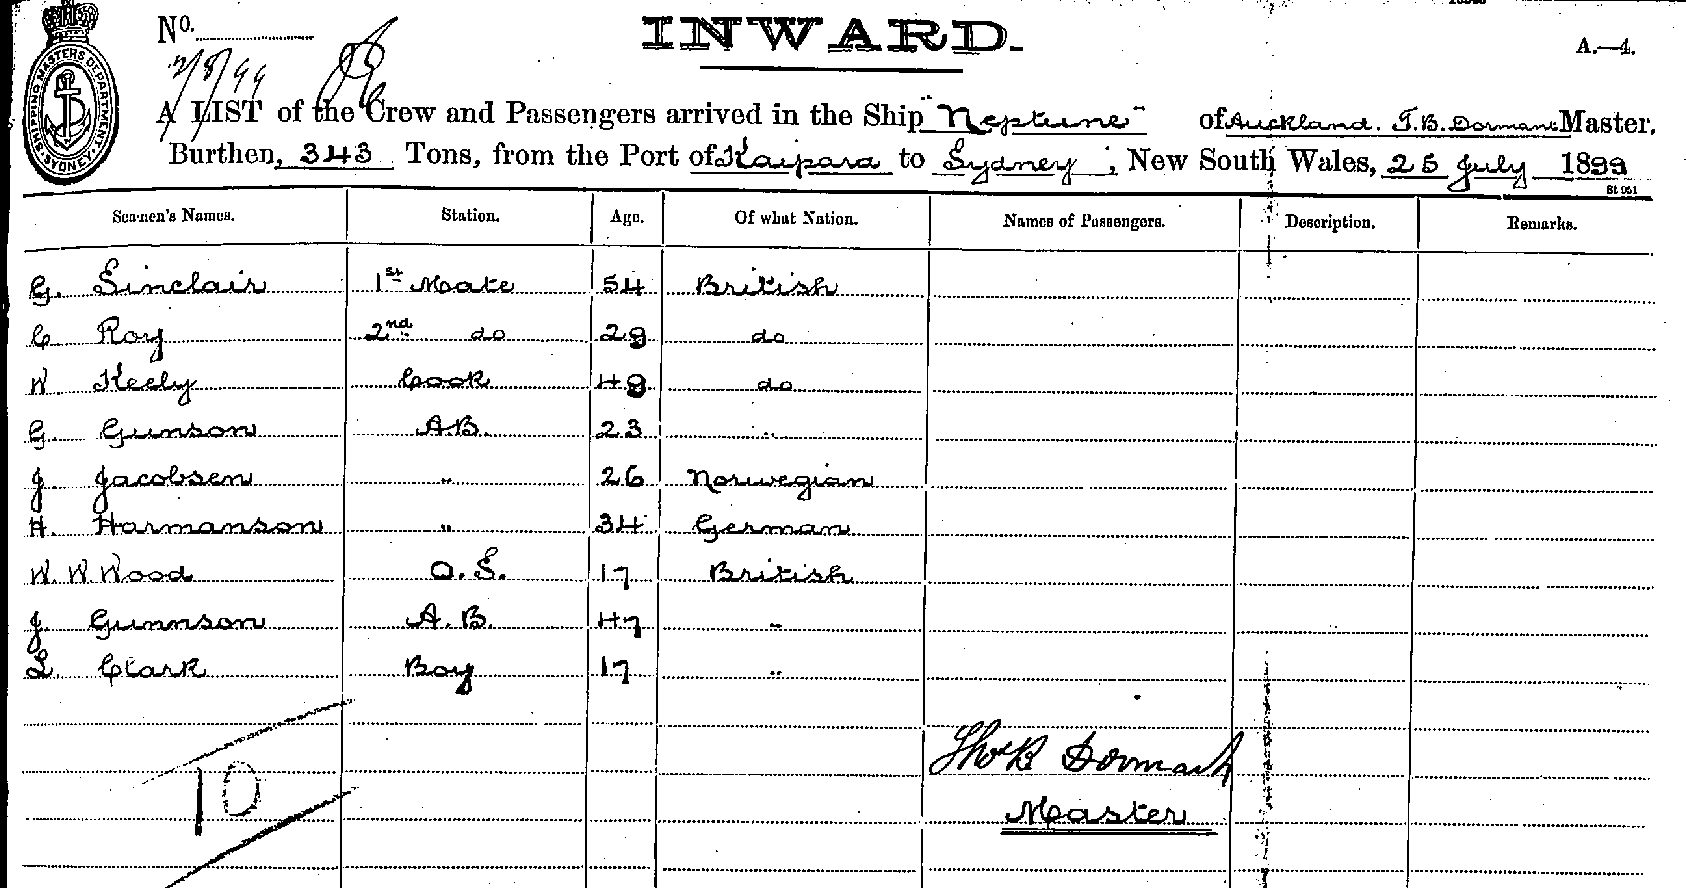 No.
INWARD.
A.—4.
2/8/99
A LIST of the Crew and Passengers arrived in the Ship "Neptune" of Auckland. T.B. Dormant Master.
Burthen, 343 Tons, from the Port of Kaipara to Sydney, New South Wales, 25 July 1899
St 951
SHIPPING MASTERS DEPARTMENT. SYDNEY.
Seamen's Names. Station. Age. Of what Nation. Names of Passengers. Description. Remarks.
G. Sinclair 1st Mate 54 British
C Roy 2nd do 29 do
W. Keely Cook 49 do
G. Gunson A.B. 23 "
J. Jacobsen " 26 Norwegian
H. Harmanson " 34 German
W. W. Wood O.S. 17 British
J. Gunnson A.B. 47 "
L. Clark Boy 17 "
Thos B Dormant
10
Master